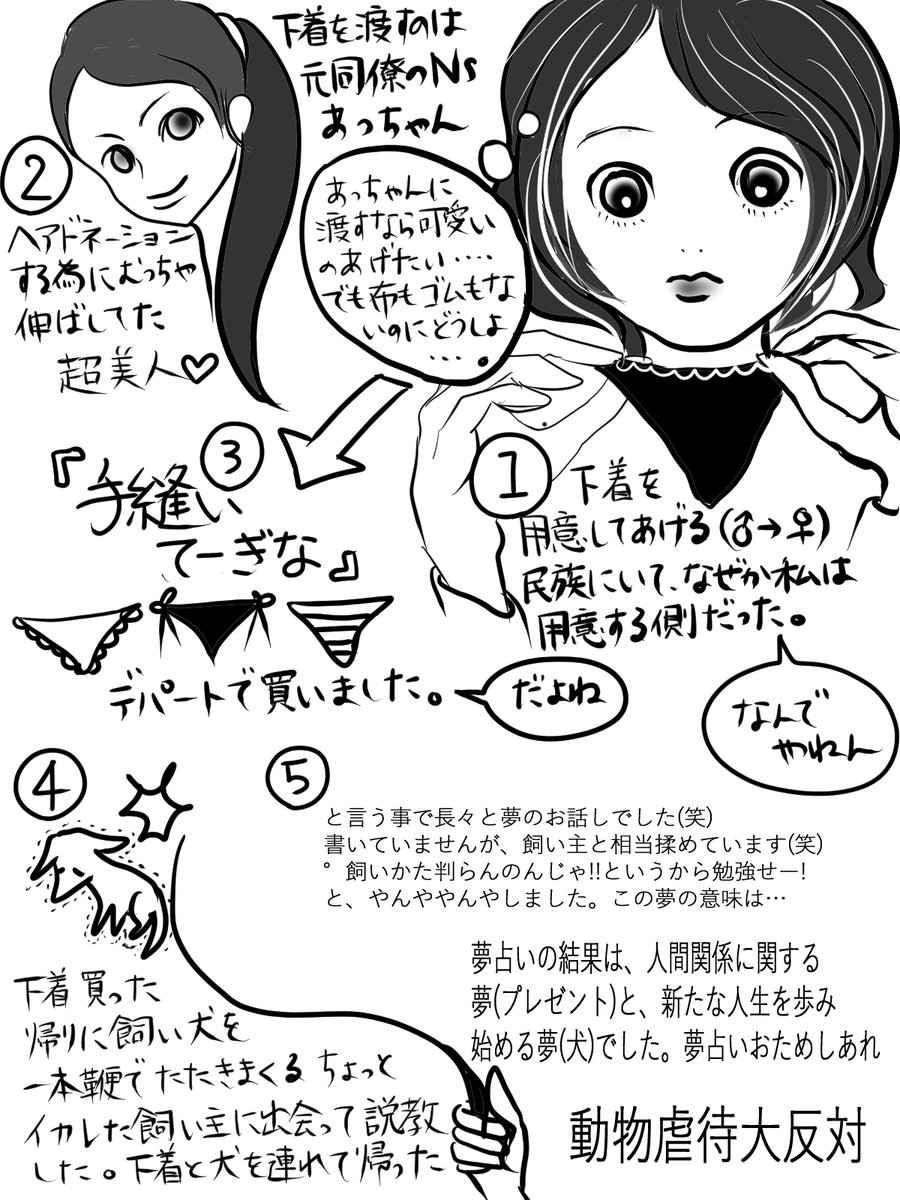 ①
下着を
用意してあげる(♂→♀)
民族にいて、なぜか私は
用意する側だった。
なんで
やねん
下着を渡すのは
元同僚のNs
あっちゃん
②
ヘアドネーション
する為にむっちゃ
伸ばしてた
超美人♡
あっちゃんに
渡すなら可愛い
のあげたい‥‥
でも布もゴムもな
いのにどうしよ
‥‥。
③
『手縫い
てーぎな』
デパートで買いました。
だよね
④
下着買った
帰りに飼い犬を
一本鞭でたたきまくるちょっと
イカレた飼い主に出会って説教
した。下着と犬を連れて帰った
⑤
と言う事で長々と夢のお話しでした(笑)
書いていませんが、飼い主と相当揉めています(笑)
゜飼いかた判らんのんじゃ!!というから勉強せー!
と、やんややんやしました。この夢の意味は…
夢占いの結果は、人間関係に関する
夢(プレゼント)と、新たな人生を歩み
始める夢(犬)でした。夢占いおためしあれ
動物虐待大反対